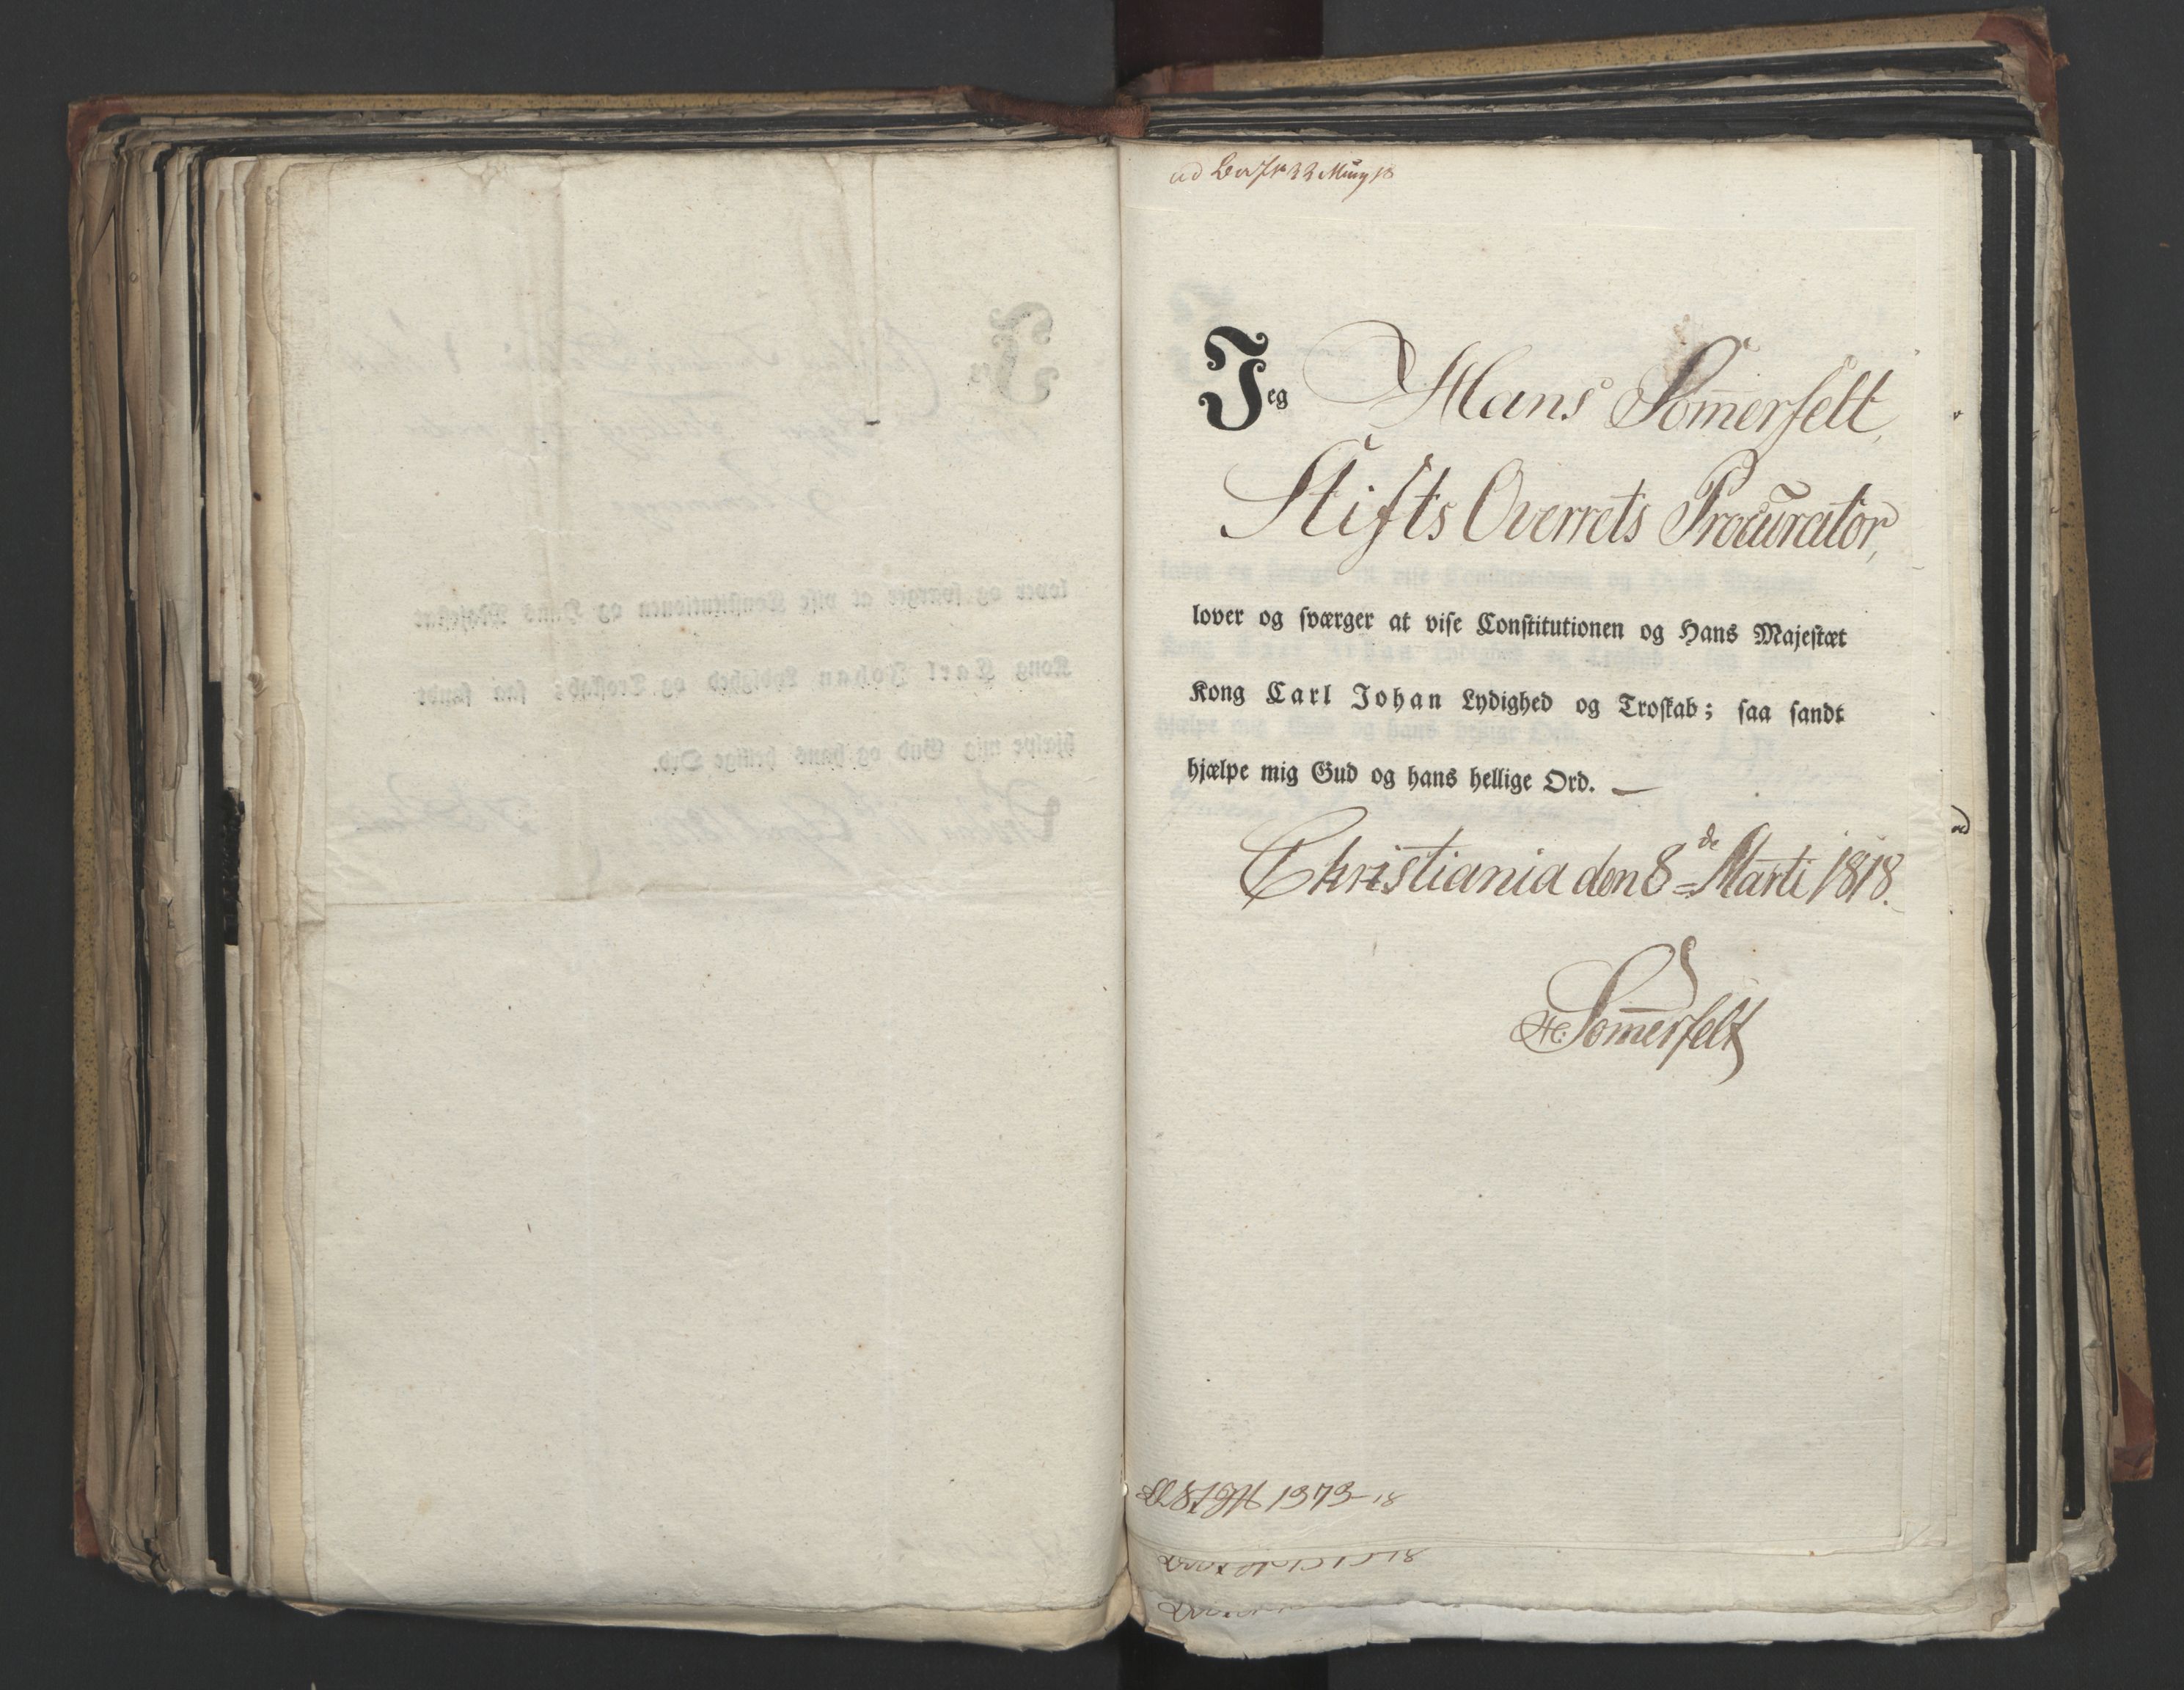 Jeg Hans Som̅erfelt,
Stifts Overrets Procurator,
lover og sværger at vise Constitutionen og Hans Majestæt
Kong Carl Johan Lydighed og Troskab; saa sandt
hjælpe mig Gud og hans hellige Ord. —
Christiania den 8de Marti 1818.
H: Som̅erfelt
1373-18